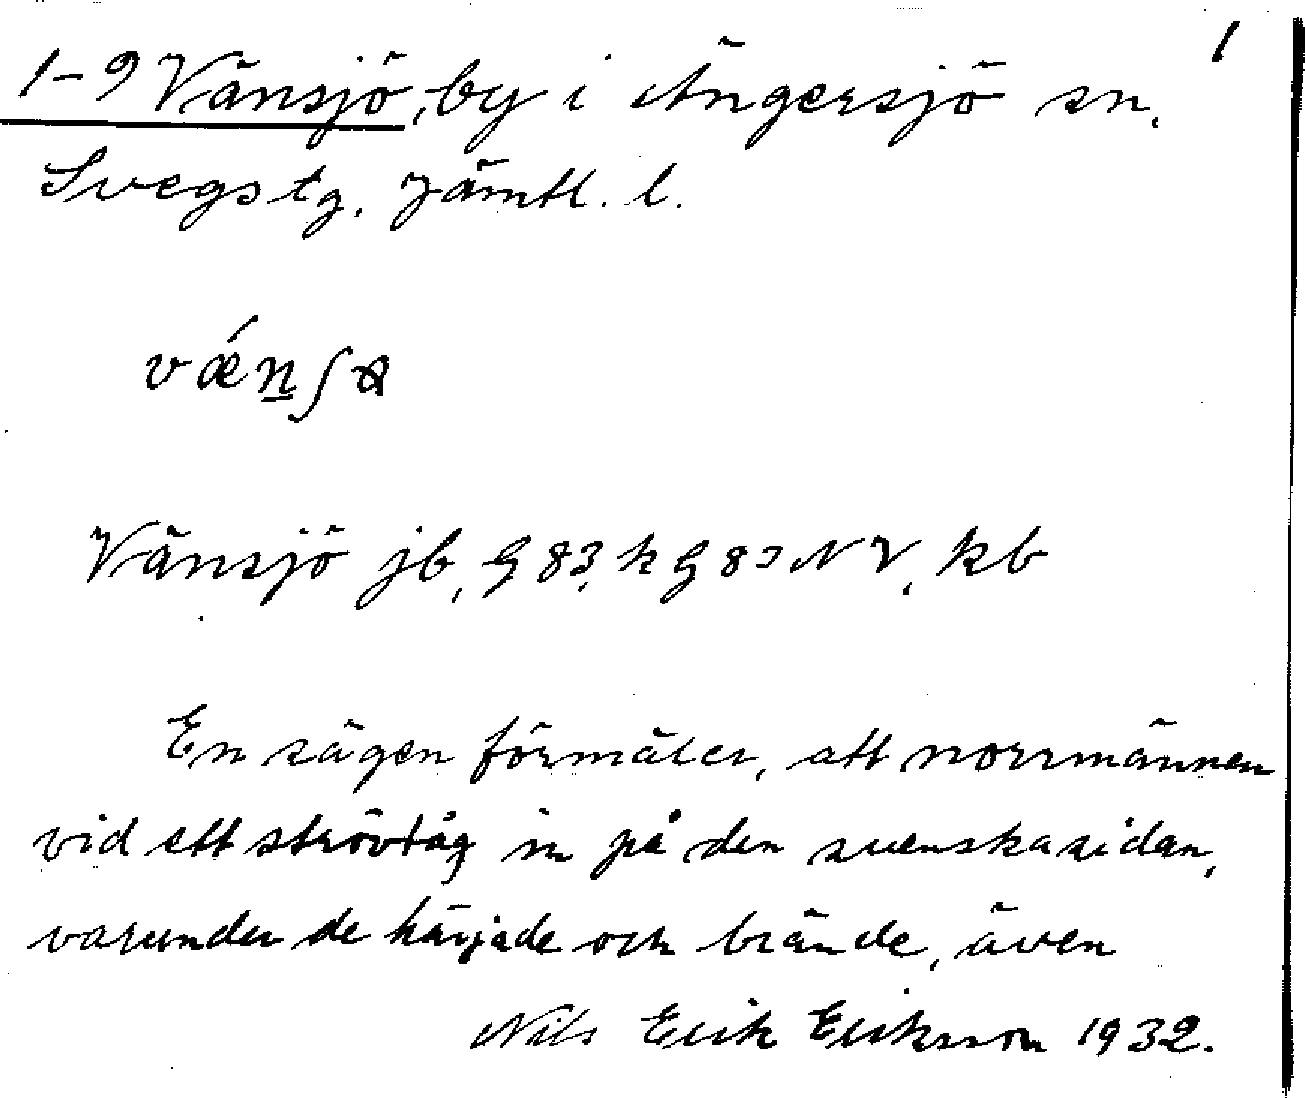 1
1-9 Vänsjö, by i Ängersjö sn,
Svegs tg. Jämtl. l.
vǽn̲ʃ
Vänsjö jb, G 83, k G 83 NV, kb
En sägen förmäler, att norrmännen
vid ett strövtåg in på den svenska sidan,
varunder de härjade och brände, även
Nils Erik Eriksson 1932.